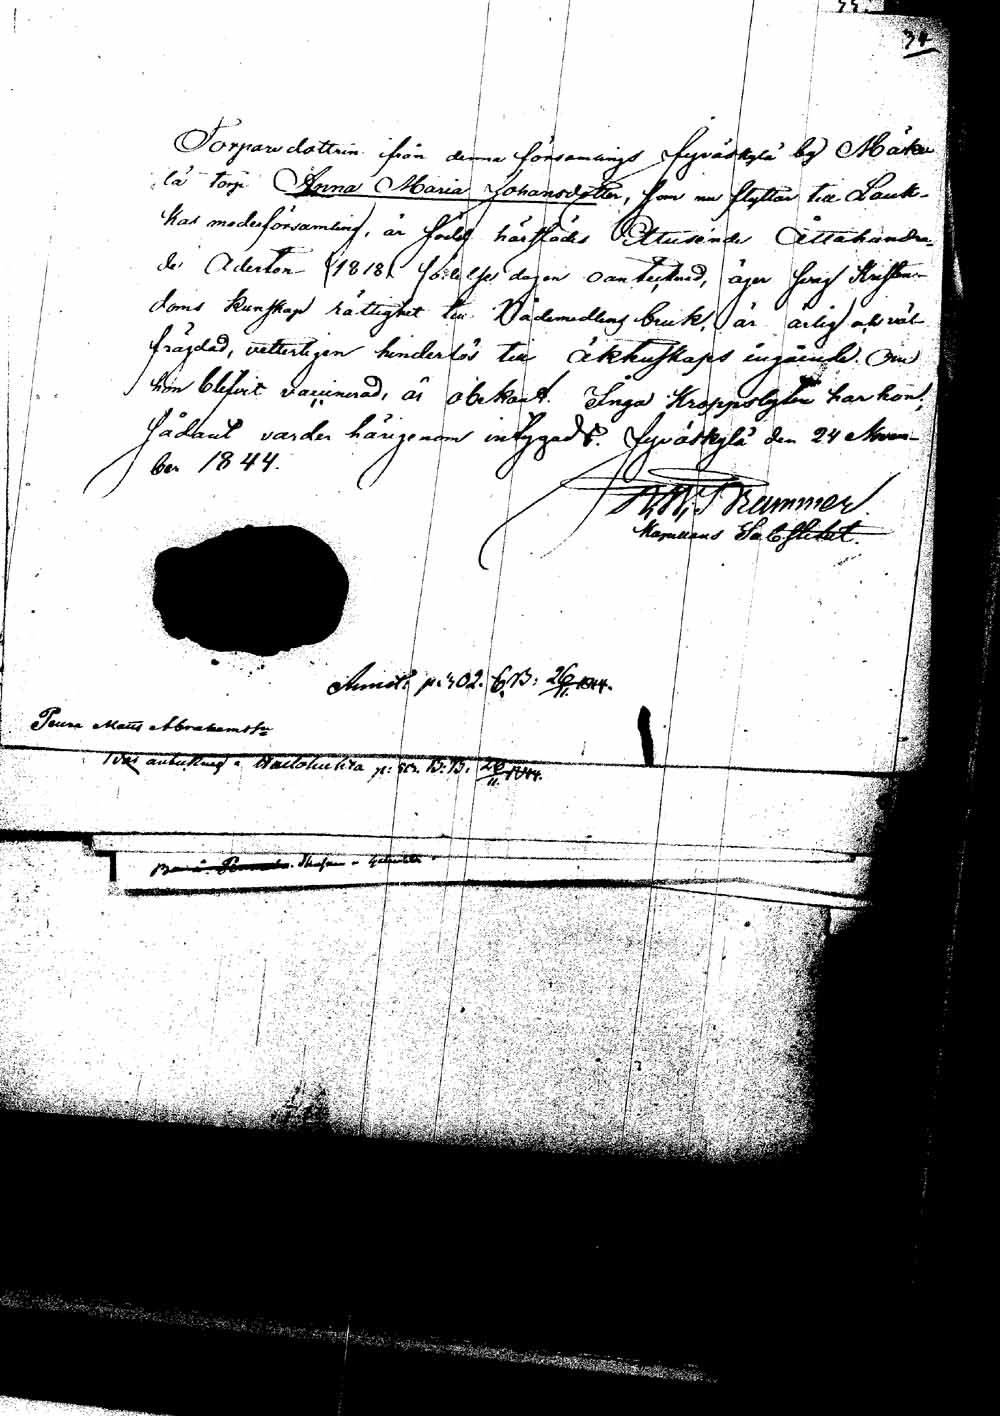 34
Torparedottren ifrån denna församlings Jyväskylä by Mäke
lä torp Anna Maria Johansdotter, som nu flyttar till Lauk-
kas moderförsamling, är född härstädes Ettusende Åttahundra-
de Aderton (1818) födelsedagen oantecknad, äger svag Kristen-
doms kunskap rättighet till Nådemedlens bruk, är ärlig och väl
frägdad, vetterligen hinderlös till äktenskaps ingående. Om
hon blifvit vaccinerad, är obekant. Inga Kroppslyten har hon,
sådant varder härigenom intygadt. Jyväskylä den 24 Novem-
ber 1844.
Brummer
Annot: p: 402. C. B: 26/11. 1844.
Peura Matts Abrahamss:
p: B: B: 26/11. 1844.